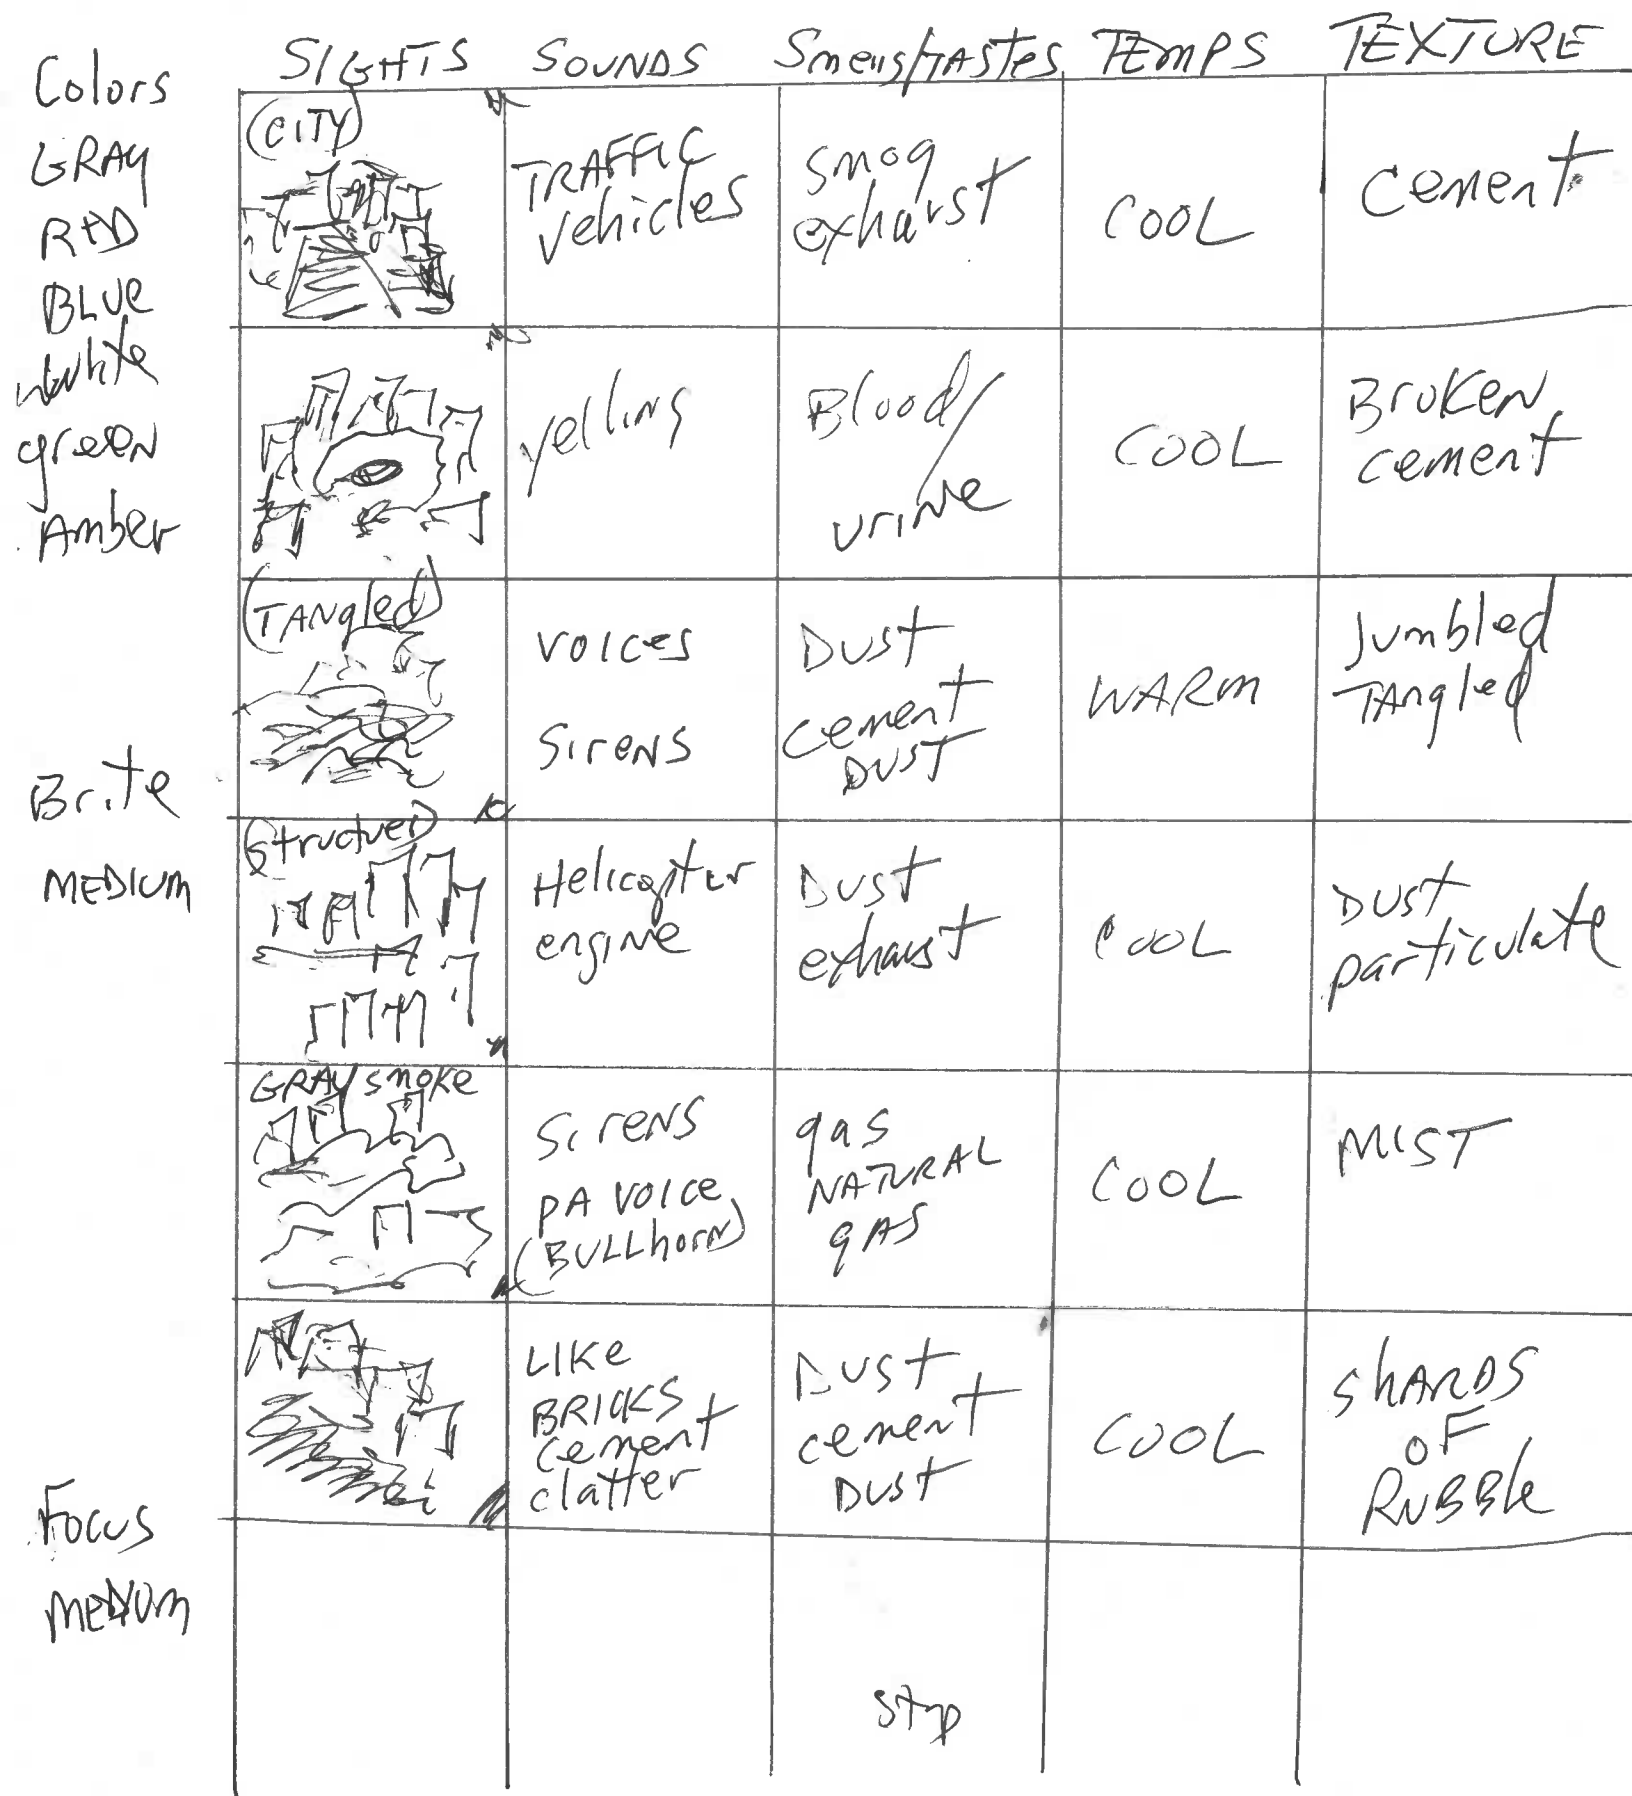 Colors
GRAY
RED
BLUE
white
green
Amber
Brite
MEDIUM
Focus
MEDIUM
SIGHTS SOUNDS Smells/TAStes TEMPS TEXTURE
(CITY)
TRAFFIC
vehicles
smog
exhaust
COOL
Cement
yelling
Blood/
urine
COOL
BroKEN
cement
(TANgled)
VOICES
SirENS
DUST
cement
DUST
WARM
Jumbled
TANgled
(Structured)
Helicopter
engine
DUST
exhaust
COOL
DUST
particulate
GRAY smoke
SirENS
PA VOICE
(BULLhorn)
gas
NATURAL
gAS
COOL
MIST
LIKe
BRICKS
cement
clatter
DUST
cement
DUST
COOL
ShARDS
OF
RUBBle
Stop